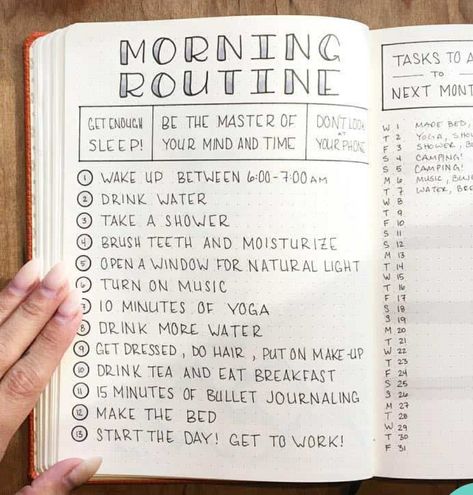 MORNING
ROUTINE
GET ENOUGH
SLEEP!
BE THE MASTER OF
YOUR MIND AND TIME
DON'T LOOK
AT
YOUR PHONE
1 WAKE UP BETWEEN 6:00-7:00 AM
2 DRINK WATER
3 TAKE A SHOWER
4 BRUSH TEETH AND MOISTURIZE
5 OPEN A WINDOW FOR NATURAL LIGHT
6 TURN ON MUSIC
7 10 MINUTES OF YOGA
8 DRINK MORE WATER
9 GET DRESSED, DO HAIR, PUT ON MAKE-UP
10 DRINK TEA AND EAT BREAKFAST
11 15 MINUTES OF BULLET JOURNALING
12 MAKE THE BED
13 START THE DAY! GET TO WORK!
TASKS TO A
TO
NEXT MONT
W 1 MADE BED,
T 2 YOGA, SHO
F 3 SHOWER,
S 4 CAMPING!
S 5 CAMPING!
M 6 MUSIC,
T 7 WATER,
W 8
T 9
F 10
S 11
S 12
M 13
T 14
W 15
T 16
F 17
S 18
S 19
M 20
T 21
W 22
T 23
F 24
S 25
S 26
M 27
T 28
W 29
T 30
F 31